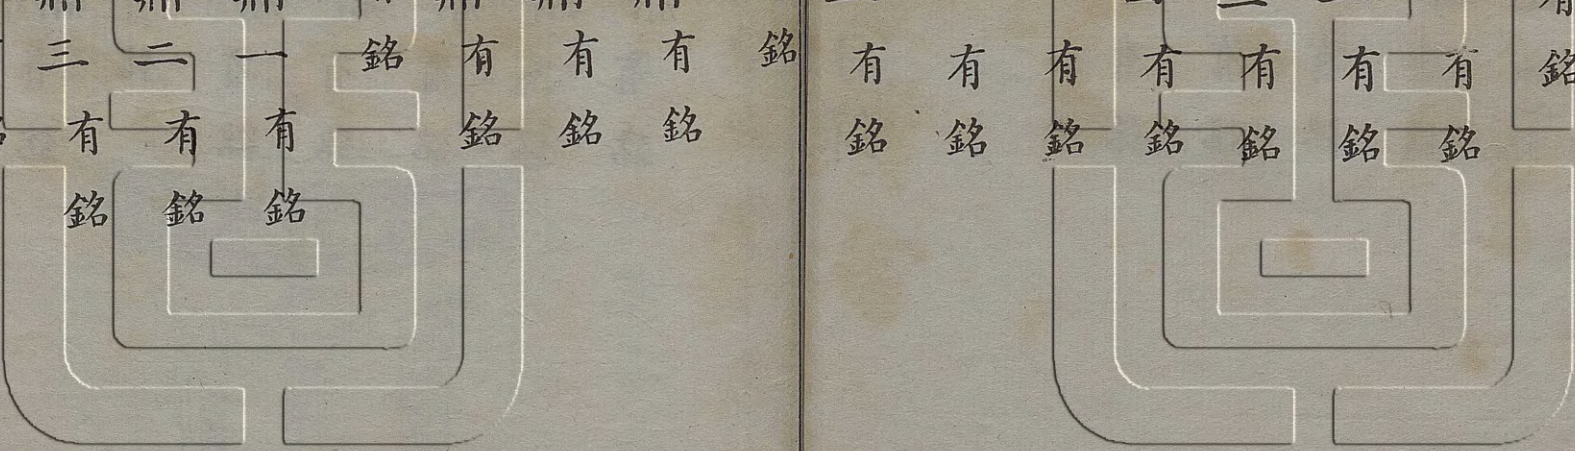 有銘
有銘
有銘
有銘
有銘
有銘
有銘
有銘
銘
有銘
有銘
有銘
銘
一有銘
二有銘
三有銘